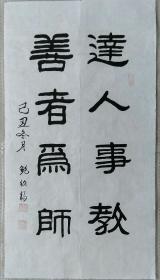 達人事教
善者爲師
己丑冬月